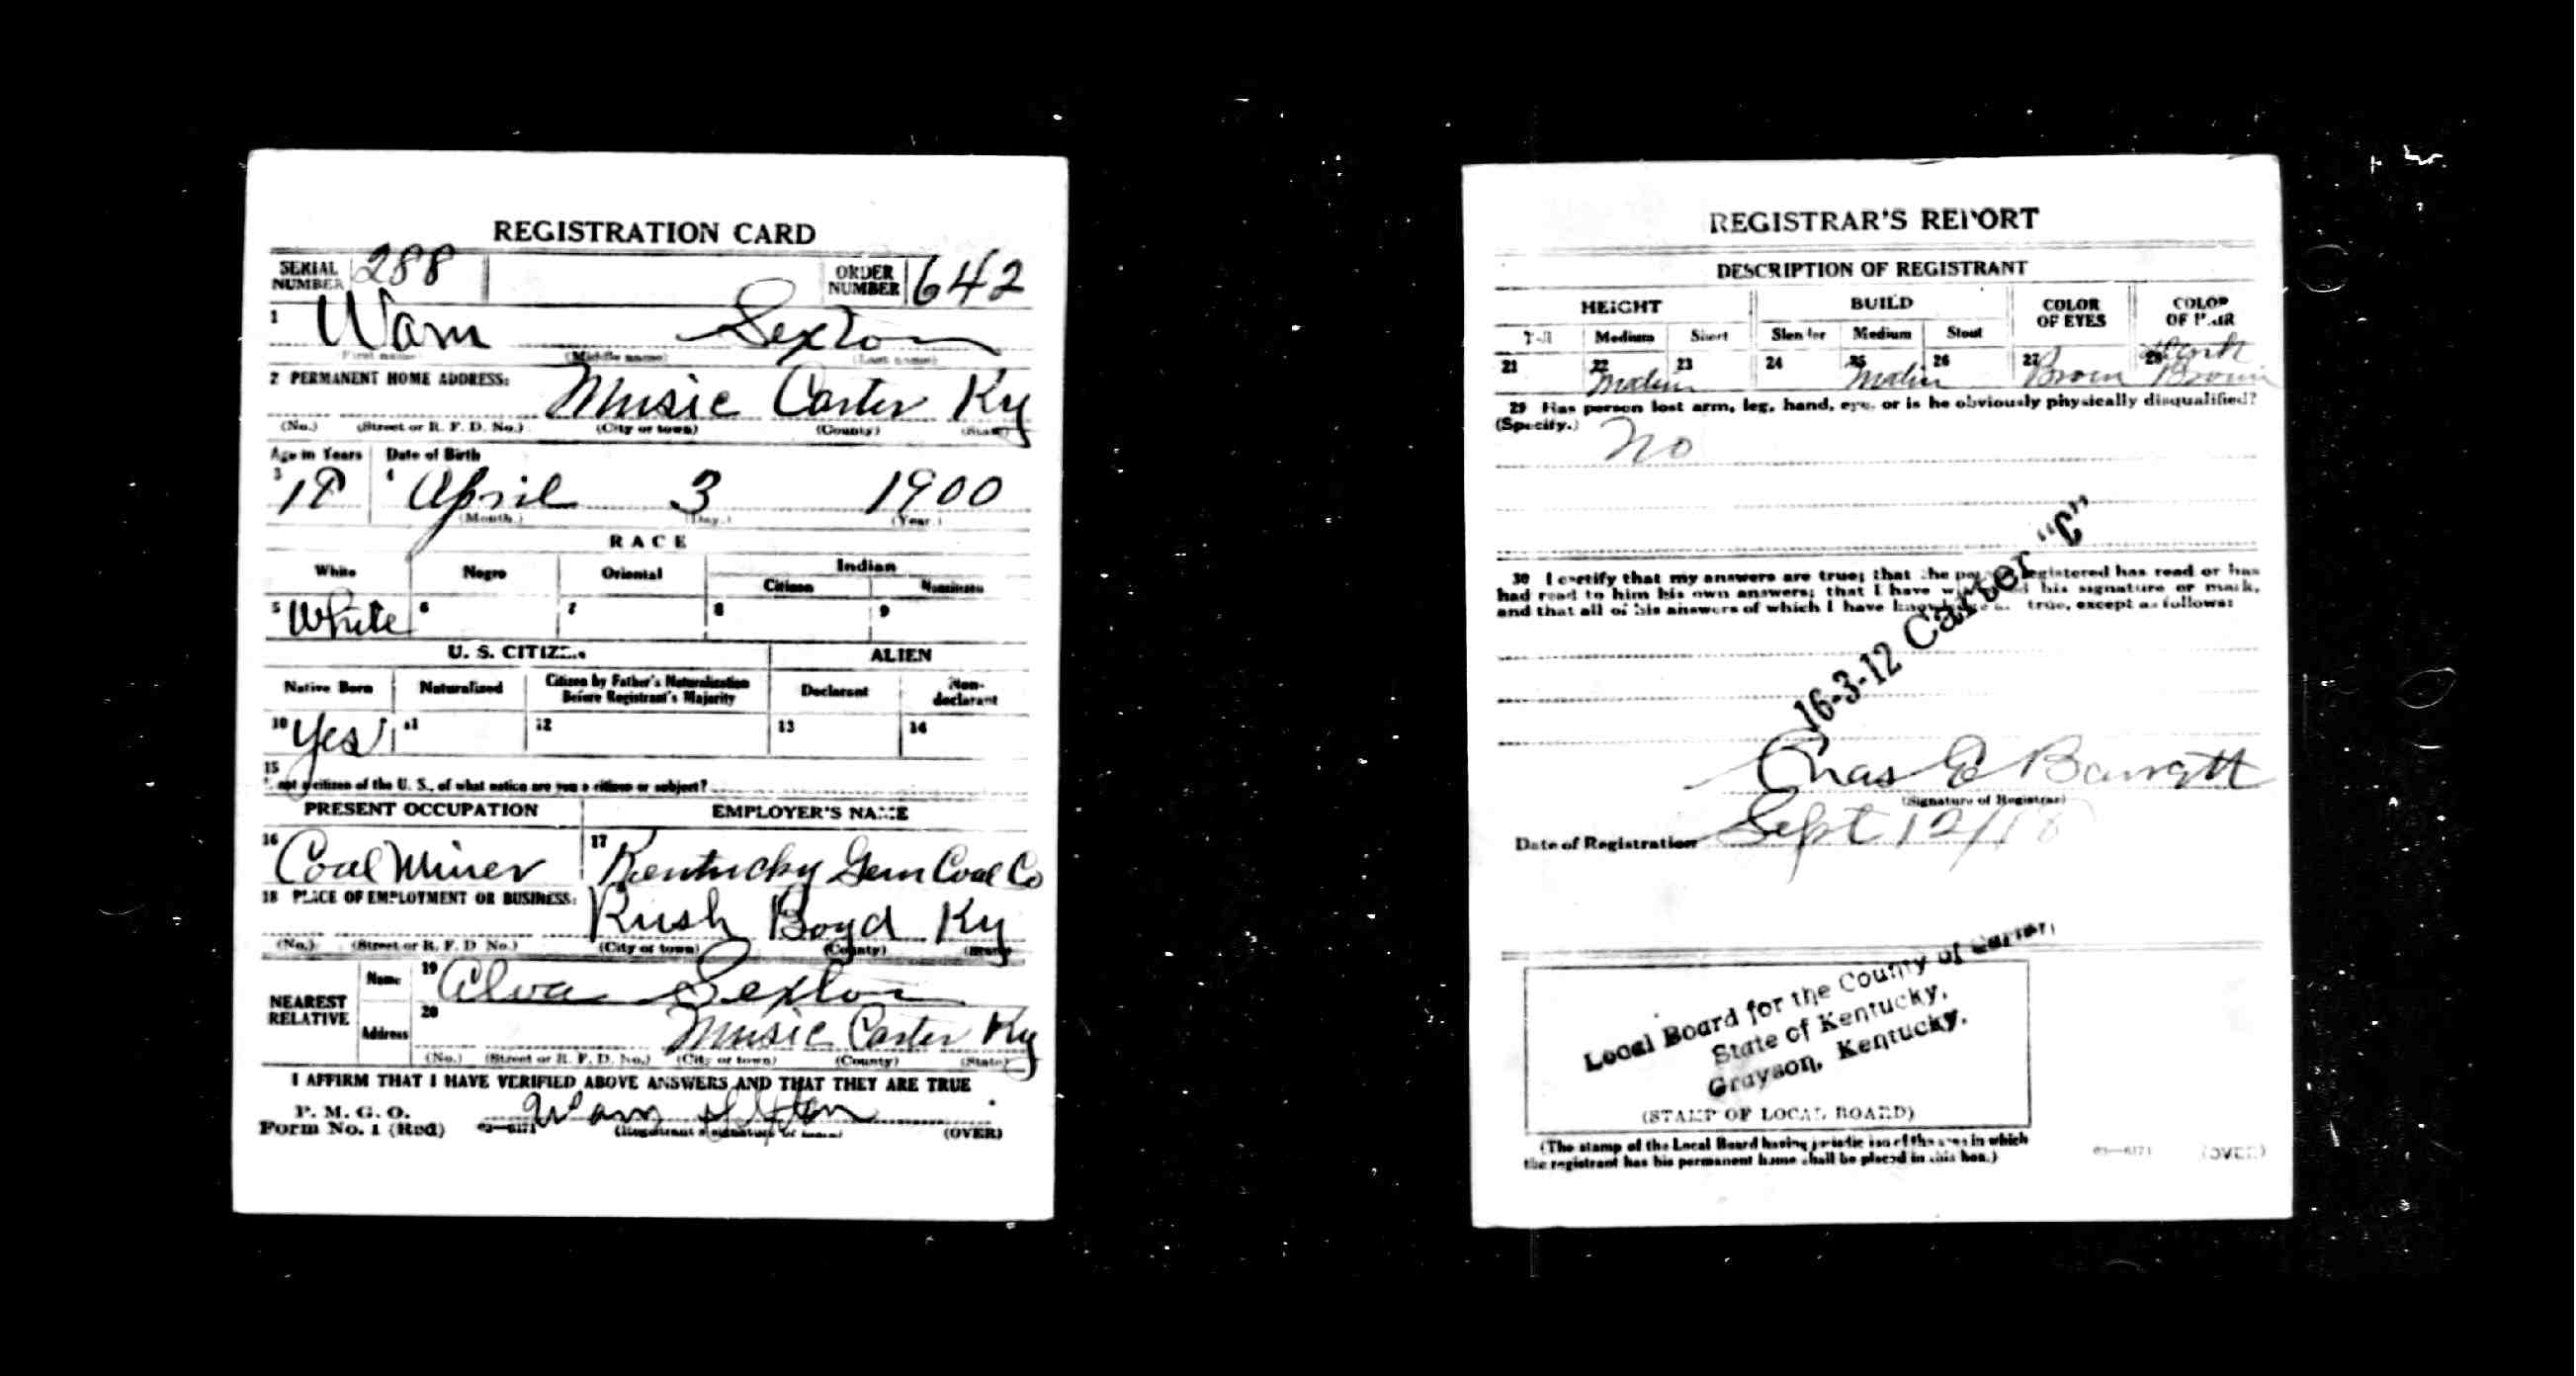 REGISTRATION CARD
SERIAL NUMBER 288 ORDER NUMBER 642
1 Wam Sexton
(First name) (Middle name) (Last name)
2 PERMANENT HOME ADDRESS:
Music Carter Ky
(No.) (Street or R. F. D. No.) (City or town) (County) (State)
Age in Years Date of Birth
3 18 4 April 3 1900
(Month.) (Day.) (Year.)
RACE
White Negro Oriental Indian
Citizen Noncitizen
5 White 6 7 8 9
U. S. CITIZEN ALIEN
Native Born Naturalized Citizen by Father's Naturalization Before Registrant's Majority Declarant Non-declarant
10 Yes 11 12 13 14
15
If not a citizen of the U. S., of what nation are you a citizen or subject?
PRESENT OCCUPATION EMPLOYER'S NAME
16 Coal Miner 17 Kentucky Gem Coal Co
18 PLACE OF EMPLOYMENT OR BUSINESS:
Rush Boyd Ky
(No.) (Street or R. F. D. No.) (City or town) (County) (State)
NEAREST RELATIVE Name 19 Alva Sexton
Address 20 Music Carter Ky
(No.) (Street or R. F. D. No.) (City or town) (County) (State)
I AFFIRM THAT I HAVE VERIFIED ABOVE ANSWERS AND THAT THEY ARE TRUE
P. M. G. O.
Form No. 1 (Red) 03—6171 Wam Sexton
(Registrant's signature or mark) (OVER)
REGISTRAR'S REPORT
DESCRIPTION OF REGISTRANT
HEIGHT BUILD COLOR OF EYES COLOR OF HAIR
Tall Medium Short Slender Medium Stout
21 22 23 24 25 26 27 Brown 28 Dark Brown
29 Has person lost arm, leg, hand, eye, or is he obviously physically disqualified?
(Specify.) No
30 I certify that my answers are true; that the person registered has read or has
had read to him his own answers; that I have witnessed his signature or mark,
and that all of his answers of which I have knowledge are true, except as follows:
16-3-12 Carter "C"
Chas E
(Signature of Registrar)
Date of Registration Sept 12/18
Local Board for the County of Carter,
State of Kentucky,
Grayson, Kentucky.
(STAMP OF LOCAL BOARD)
(The stamp of the Local Board having jurisdiction of the area in which
the registrant has his permanent home shall be placed in this box.)
03—6171 (OVER)